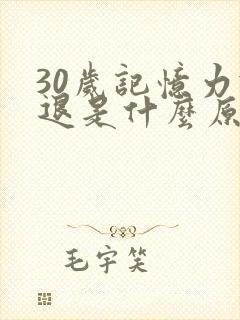 30歲記憶力
退是什麼原
毛宇笑